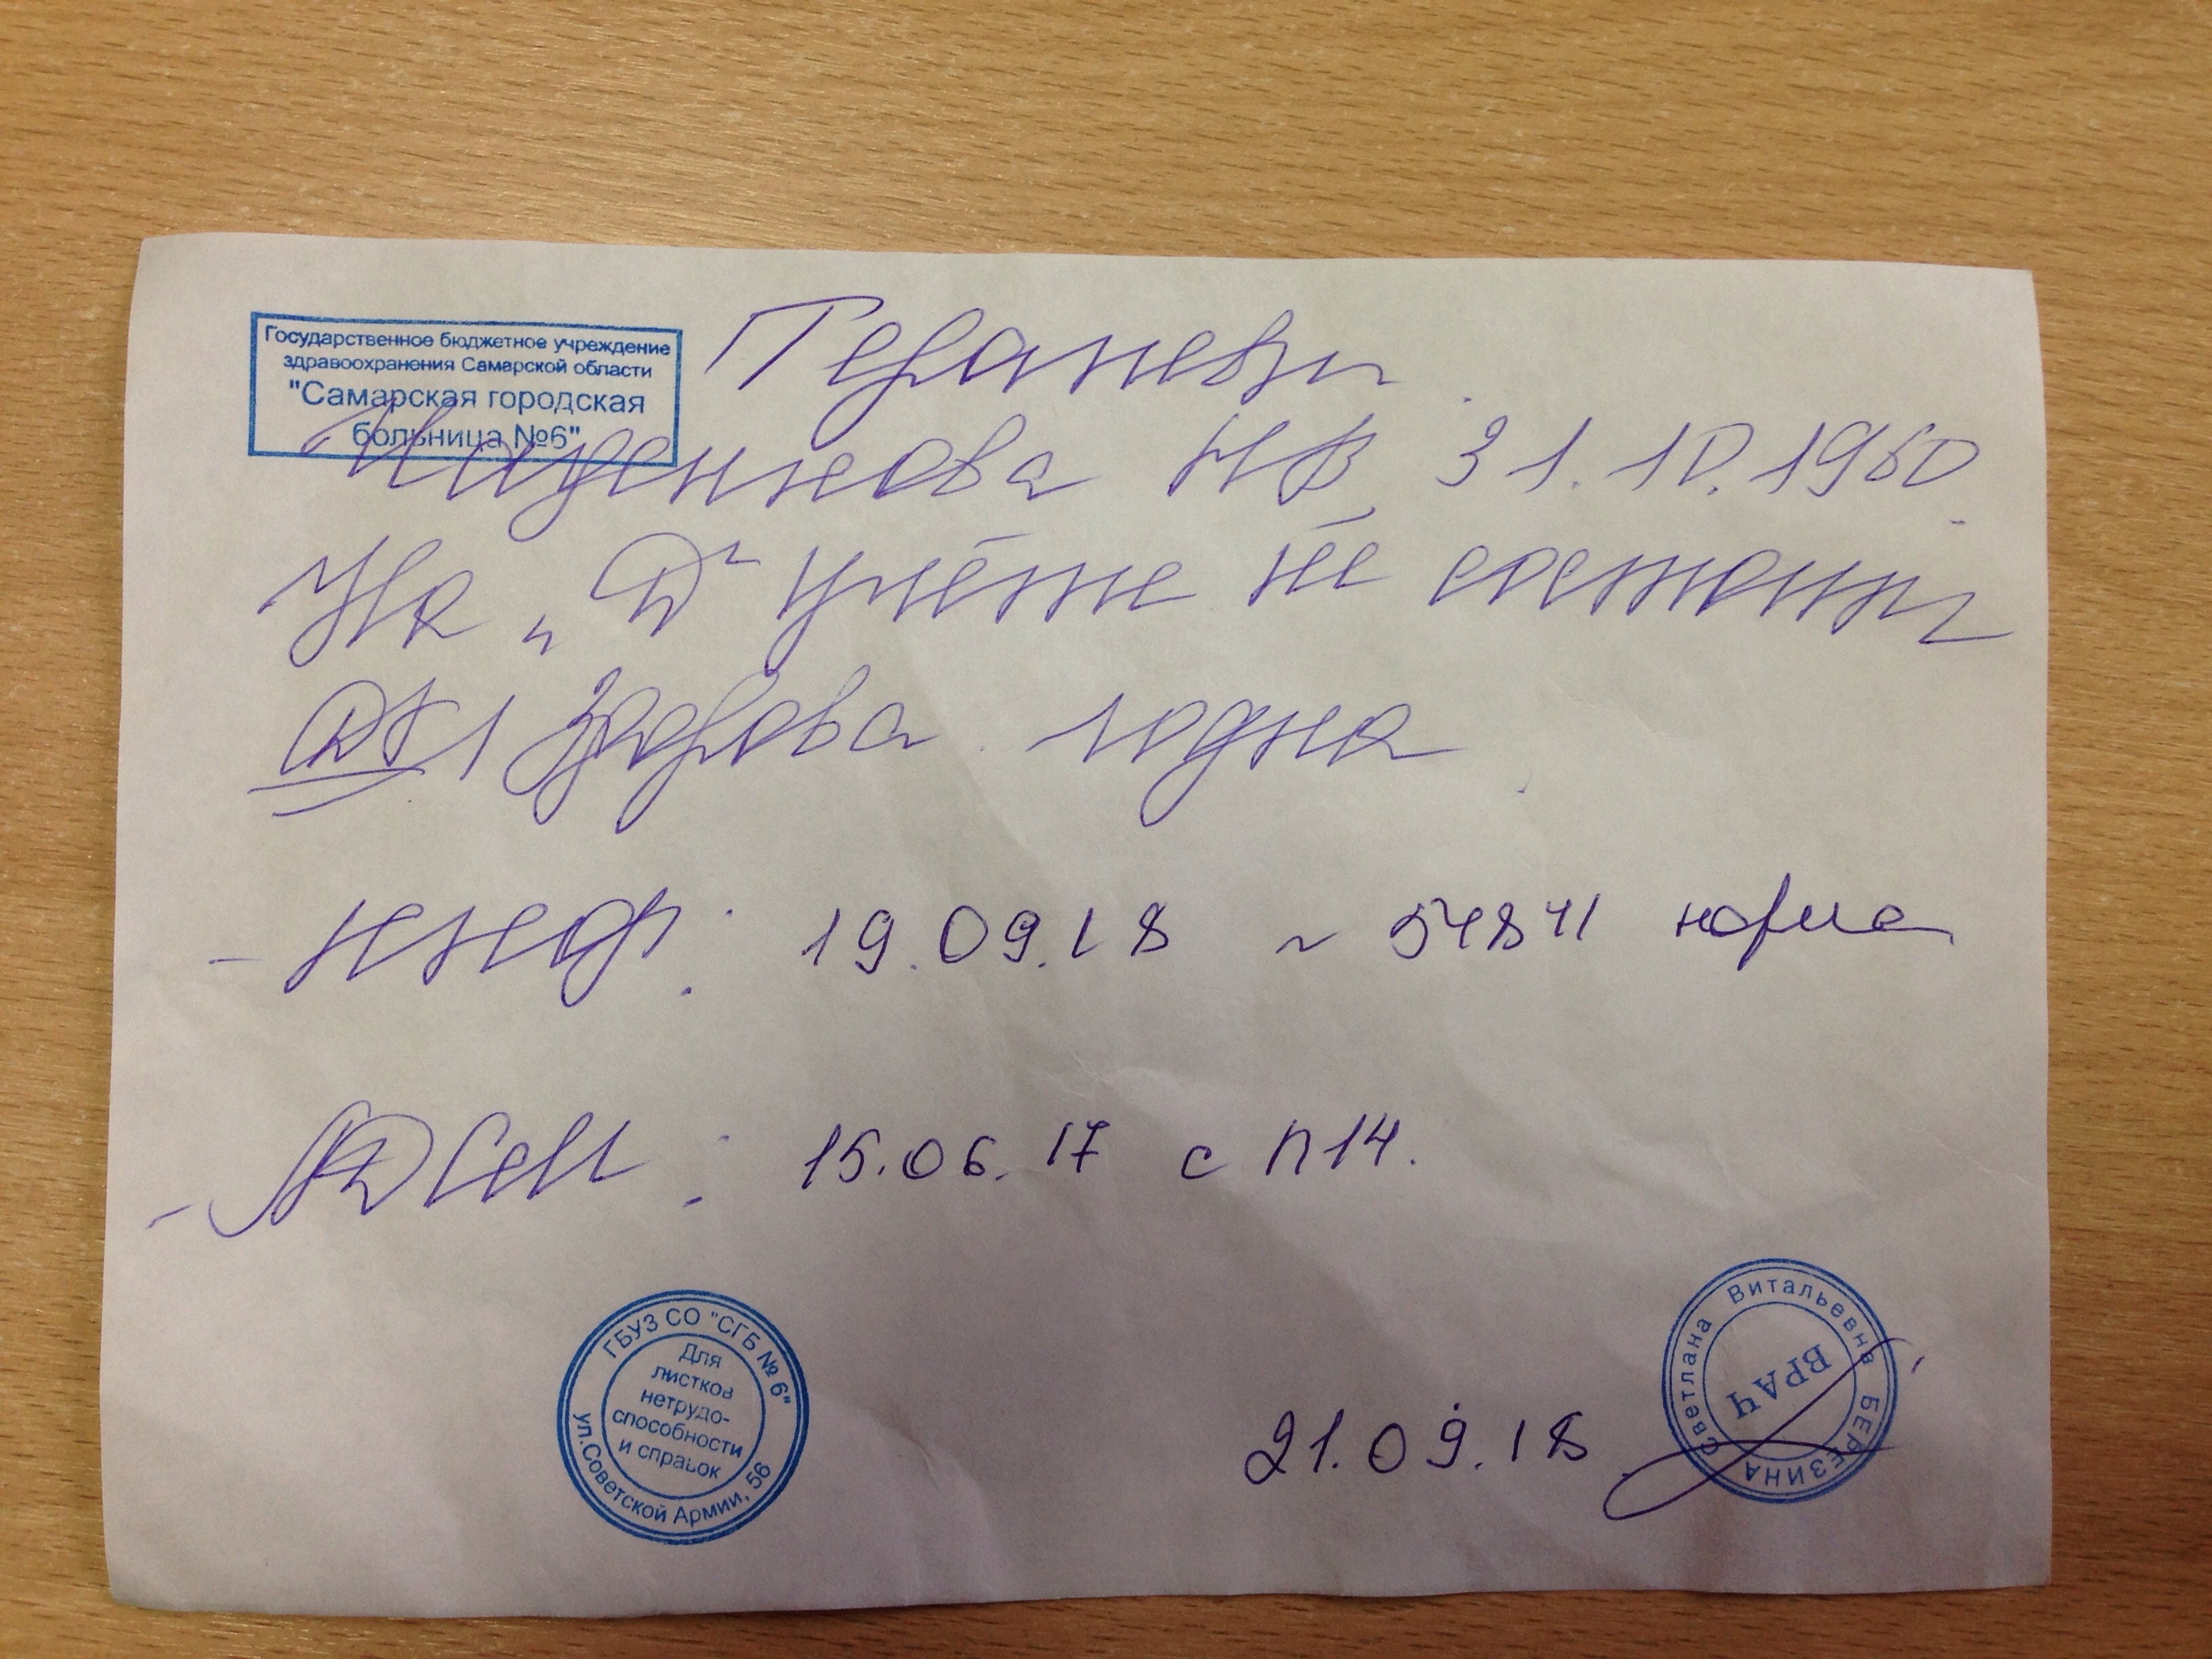 Государственное бюджетное учреждение
здравоохранения Самарской области
"Самарская городская
больница №6"
Терапевт
НВ 31.10.1960
На "Д" учёте не состоит
Здорова годна
- 19.09.18 ~ 54841 норма
- АДСМ : 15.06.17 с п14.
ГБУЗ СО "СГБ №6"
Для
листков
нетрудо-
способности
и справок
ул.Советской Армии, 56
21.09.18
Светлана Витальевна БЕРЕЗИНА
ВРАЧ